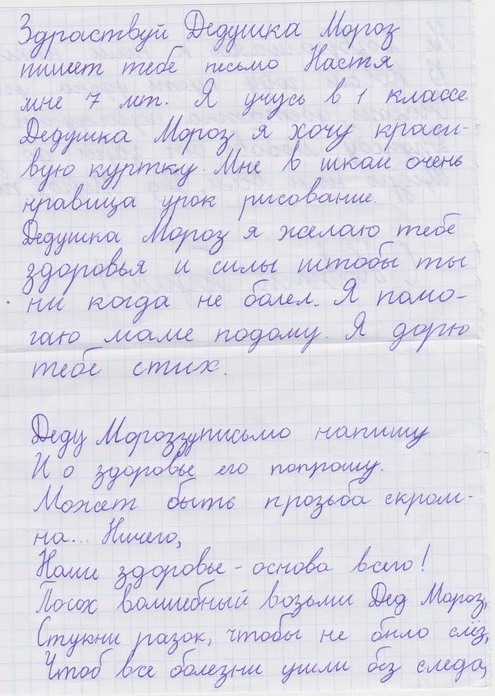 Здраствуй Дедушка Мороз
пишет тебе письмо Настя
мне 7 лет. Я учусь в 1 классе.
Дедушка Мороз я хочу краси-
вую куртку. Мне в шкали очень
нравица урок рисование.
Дедушка Мороз я желаю тебе
здоровья и силы штобы ты
ни когда не болел. Я помо-
гаю маме подому. Я дорю
тебе стих.
Деду Морозу письмо напишу
И о здоровье его попрошу.
Может быть прозьба скром-
на... Ничего,
Наше здоровье - основа всего!
Посох волшебный возьми Дед Мороз,
Стукни разок, чтобы не было слёз,
Чтоб все болезни ушли без следа,